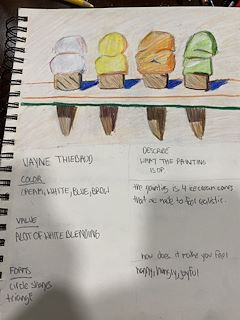 WAYNE THIEBAUD
COLOR
CREAM, WHITE, BLUE, BROW
VALUE
A LOT OF WHITE BLENDING
FORMS
circle shapes
triangle
DESCRIBE
WHAT THE PAINTING
IS OF.
the painting is 4 ice cream cones
that are made to feel realistic.
how does it make you feel
happy, hungry, joyful